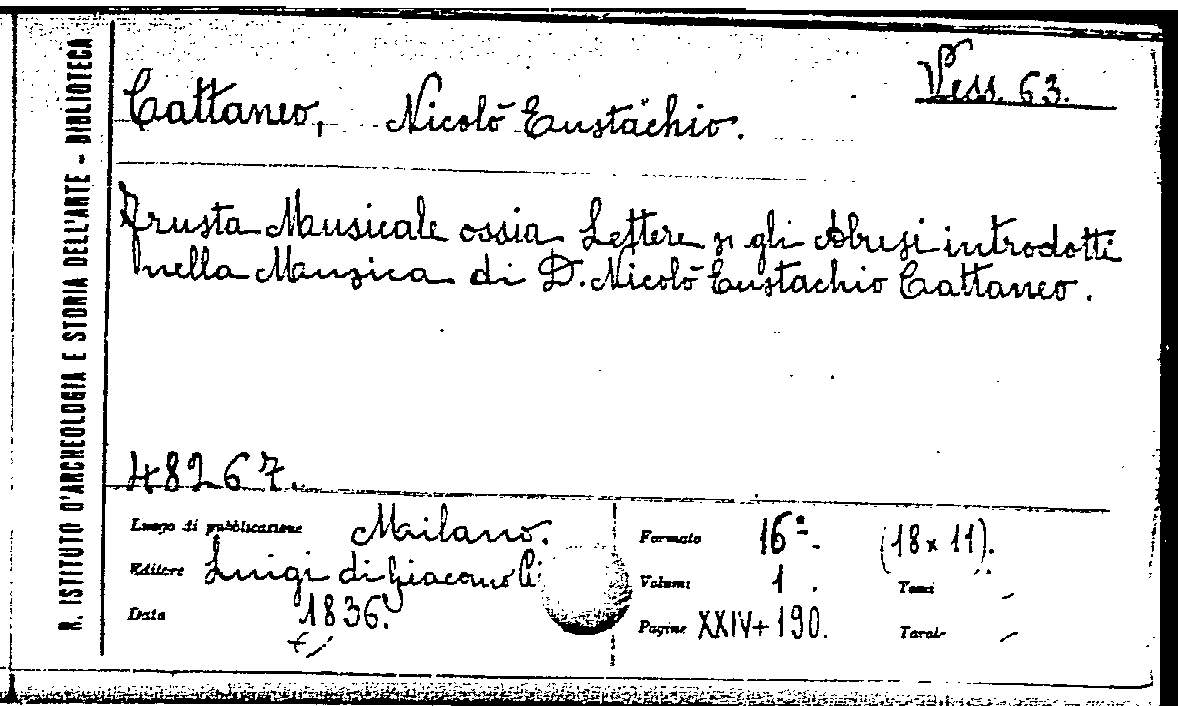 R. ISTITUTO D'ARCHEOLOGIA E STORIA DELL'ARTE - BIBLIOTECA
Vess. 63.
Cattaneo, Nicolò Eustachio.
Frusta Musicale ossia Lettere sugli Abusi introdotti
nella Musica di D. Nicolò Eustachio Cattaneo.
48267.
Luogo di pubblicazione Milano.
Editore Luigi di Giacomo
Data 1836.
Formato 16º. (18 x 11).
Volumi 1.
Tomi -
Pagine XXIV+190.
Tavole -